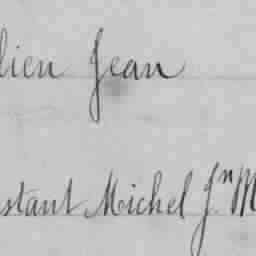 lien Jean
stant Michel Jn M